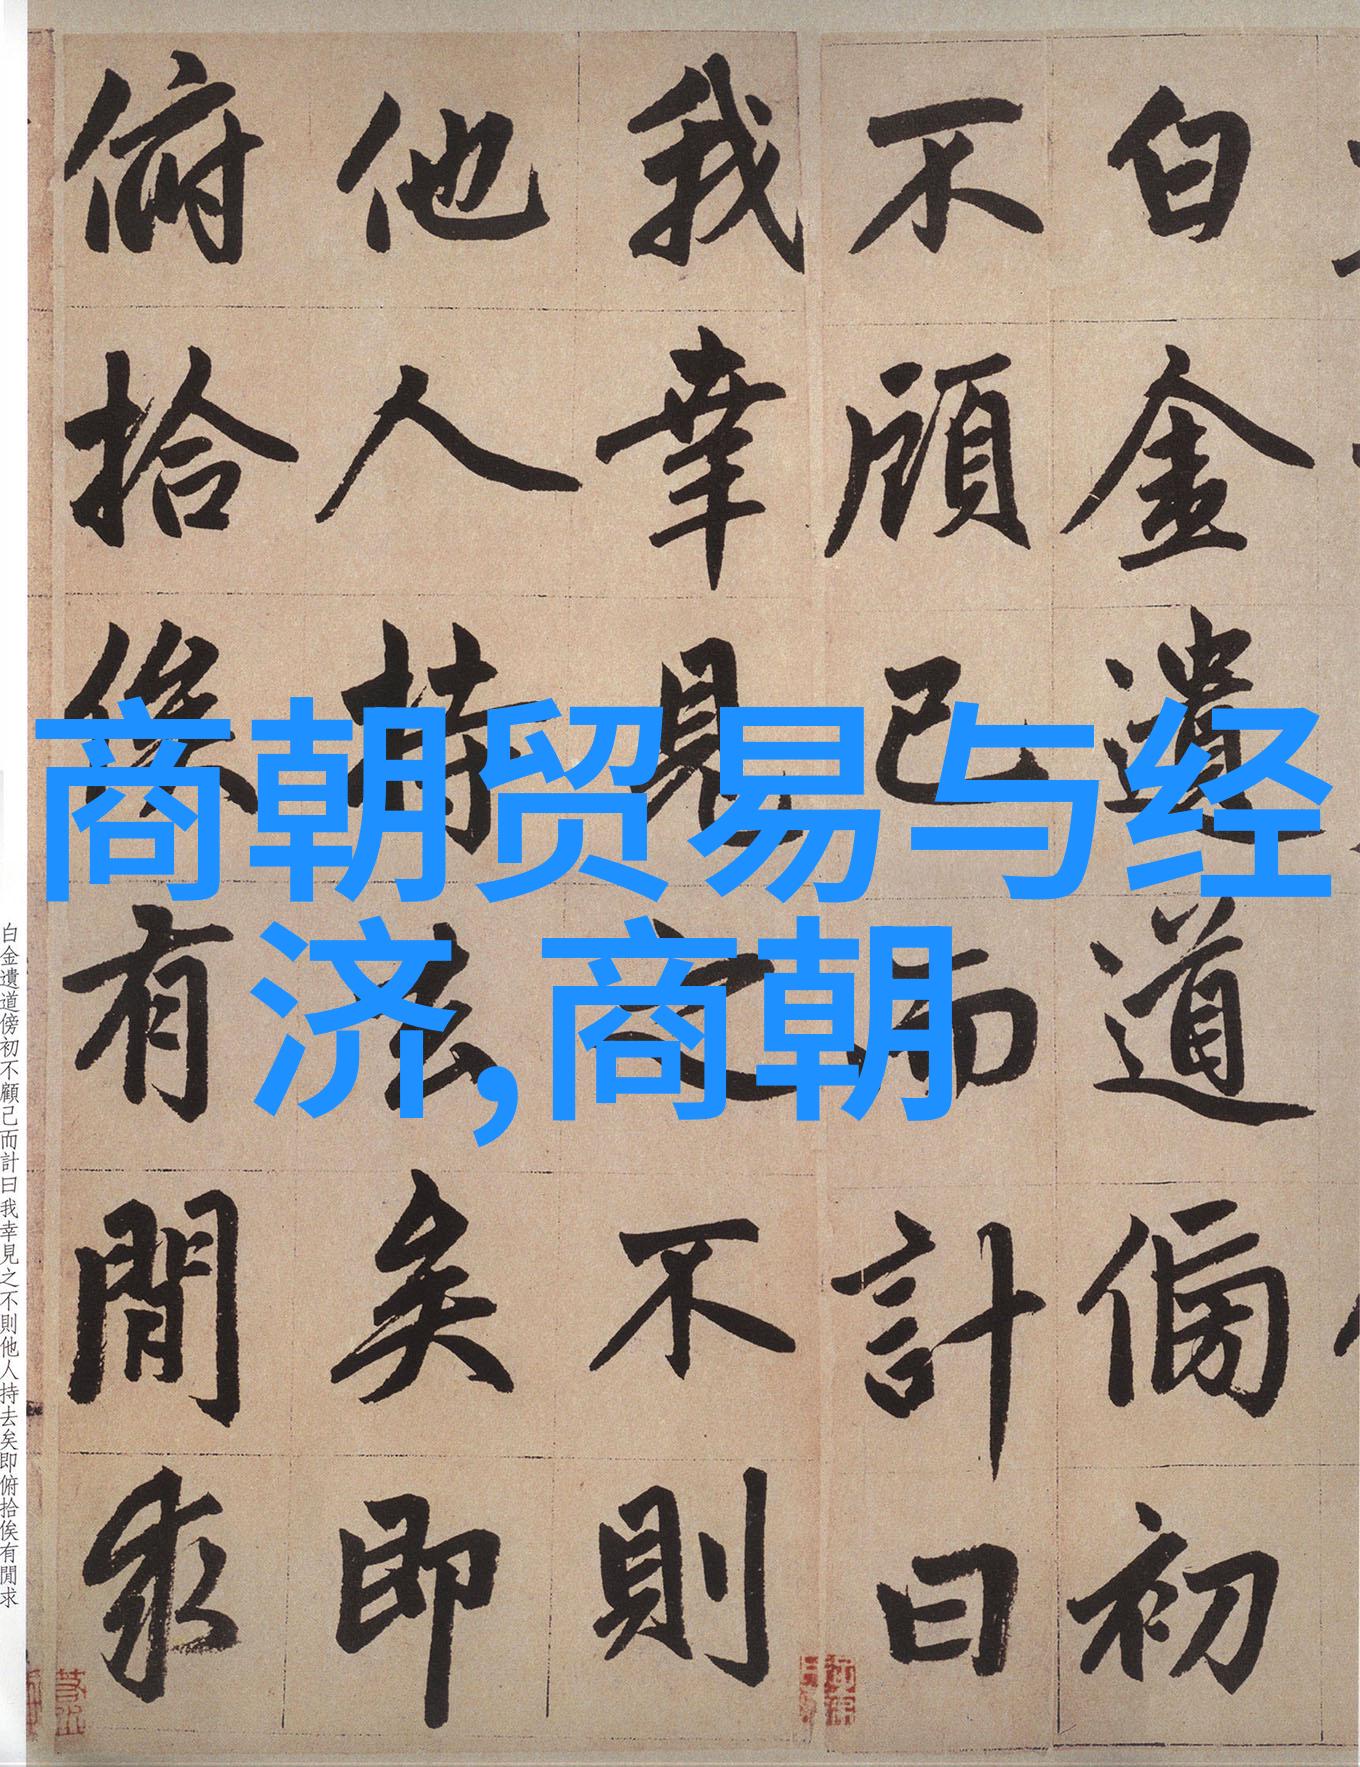 商朝贸易与经
济,商朝
白金遺道傍初
不顧己而計曰
我幸見之不則
他人持去矣即
俯拾俟有閒求
白金遺道傍初不顧己而計曰我幸見之不則他人持去矣即俯拾俟有閒求